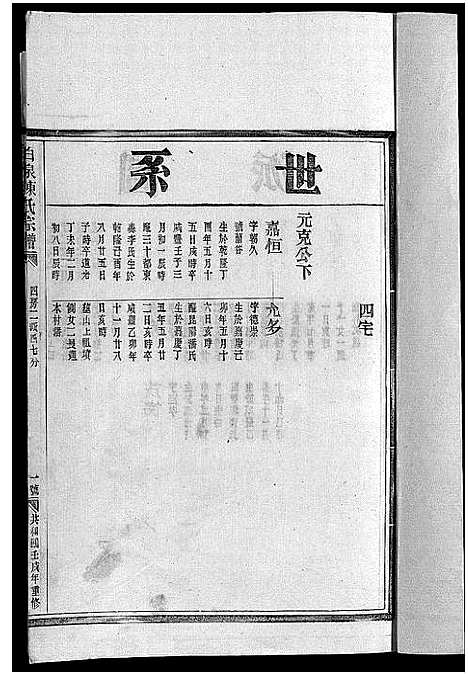 世系
四宅
元克公下
嘉恒
字朝久
號蘭谷
生於乾隆丁
酉年五月十
五日戌時卒
咸豐壬子三
月初一辰時
庭三十都東
秦李氏生於
乾隆己酉年
八月廿五日
子時卒道光
丁未年二月
初八日辰時
允多
字德崇
生於嘉慶己
卯年五月十
六日亥時
配昆陽潘氏
生於嘉慶丁
丑年五月廿
二日亥時卒
咸豐乙卯年
十一月廿八
日亥時
墓山上祖墳
側女二長適
木村潘
白泉陳氏宗譜
四房一派西七分
一號
共和國壬戌年重修